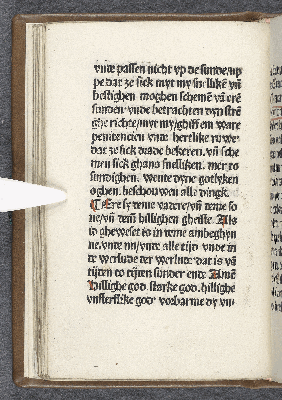 vnde passen nicht vp de sunde. up
pe dat ze sick myt my snellike vñ
bestighen moghen schemē vā erē
sunden vnde betrachten dyn strē
ghe richte/myt my/ghiff en ware
penitencien vnde hertlike ruwe
dat ze sick drade bekeren. vñ sche
men sick ghans snelliken. mer to
sundighen. wente dyne gotliken
oghen. beschouwen alle dingk.
Ere sy deme vadere/vñ deme so
ne/vñ dem̄ hillighen gheiste. Als
id gheweset is in deme ambeghyn
ne. vnde nu/vnde alle tijd vnde in
de werlude der werlude dat is vā
tijden to tijden sunder ende Amē
Hillighe god. starke god. hillighe
vnsterflike god vorbarme dy vn